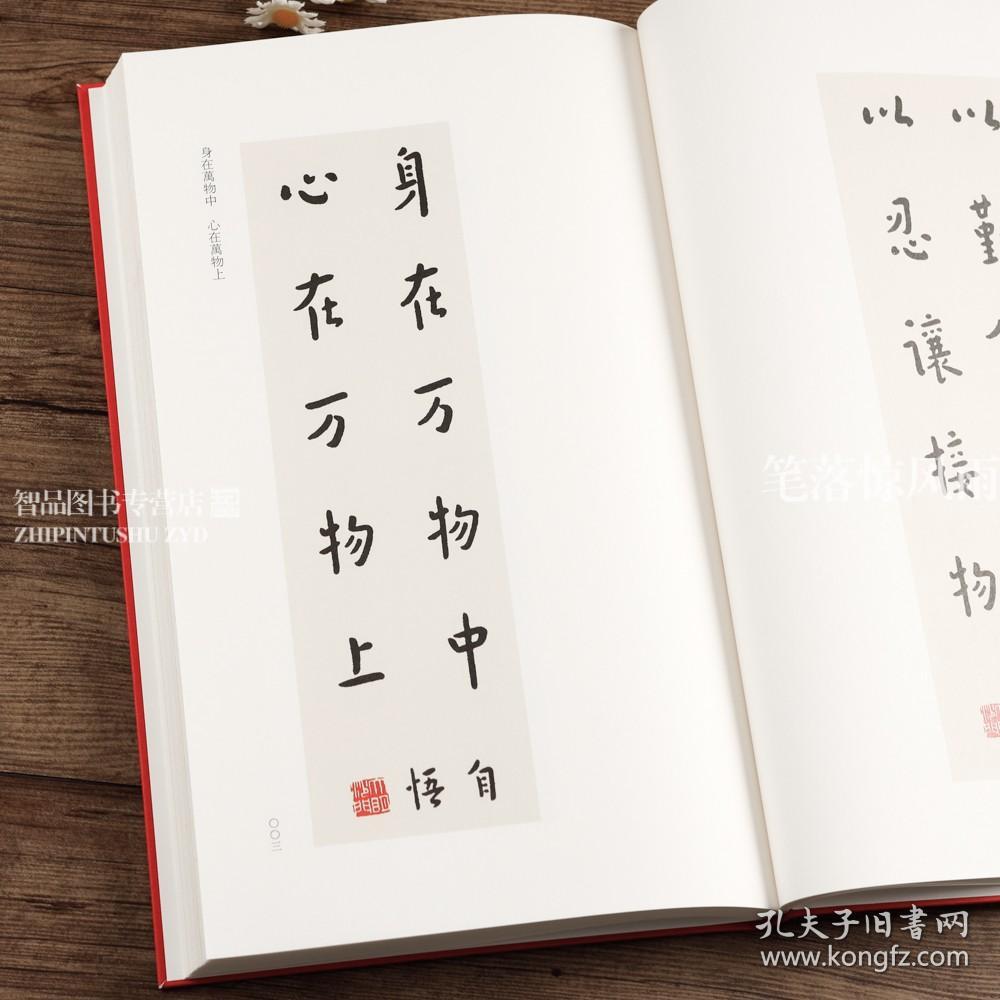 身在萬物中　心在萬物上
身在万物中
心在万物上
自悟
〇〇三
以
以忍讓接物
智品图书专营店
ZHIPINTUSHU ZYD
笔落惊风雨
孔夫子旧書网
www.kongfz.com